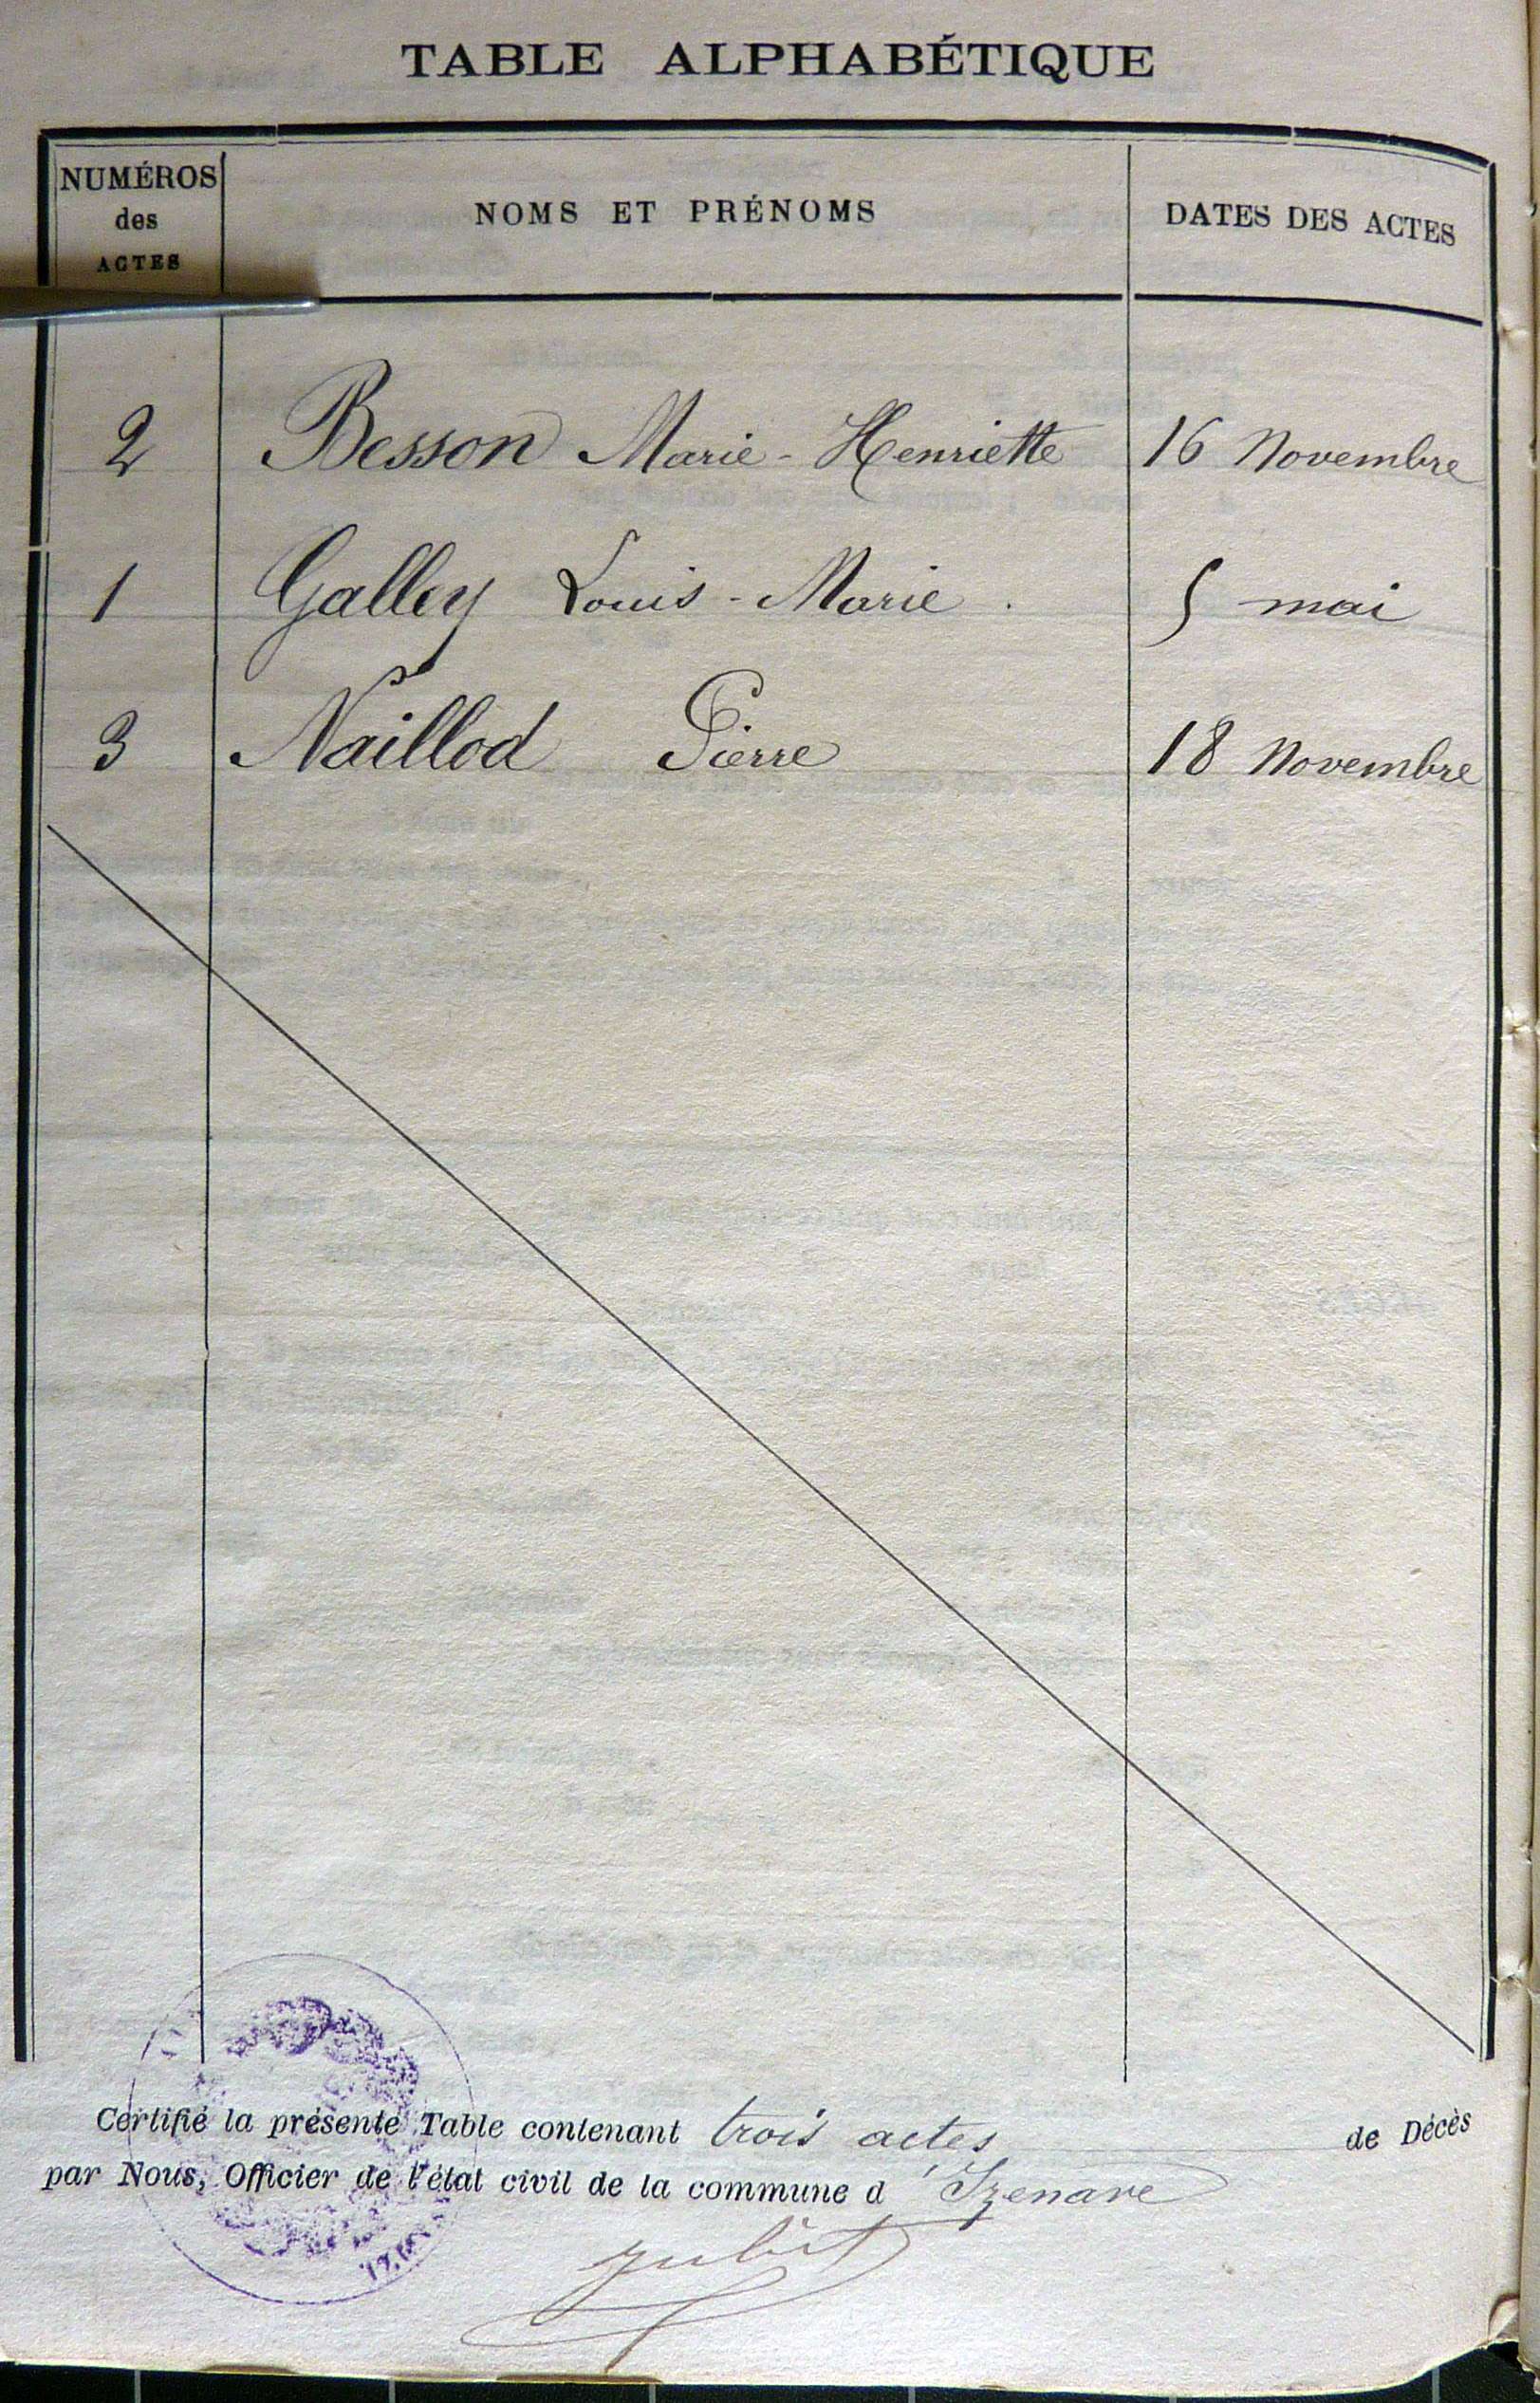 TABLE ALPHABÉTIQUE
NUMÉROS
des
ACTES
NOMS ET PRÉNOMS
DATES DES ACTES
2 Besson Marie-Henriette 16 Novembre
1 Galley Louis-Marie. 5 mai
3 Naillod Pierre 18 Novembre
Certifié la présente Table contenant trois actes de Décès
par Nous, Officier de l'état civil de la commune d'Izenave